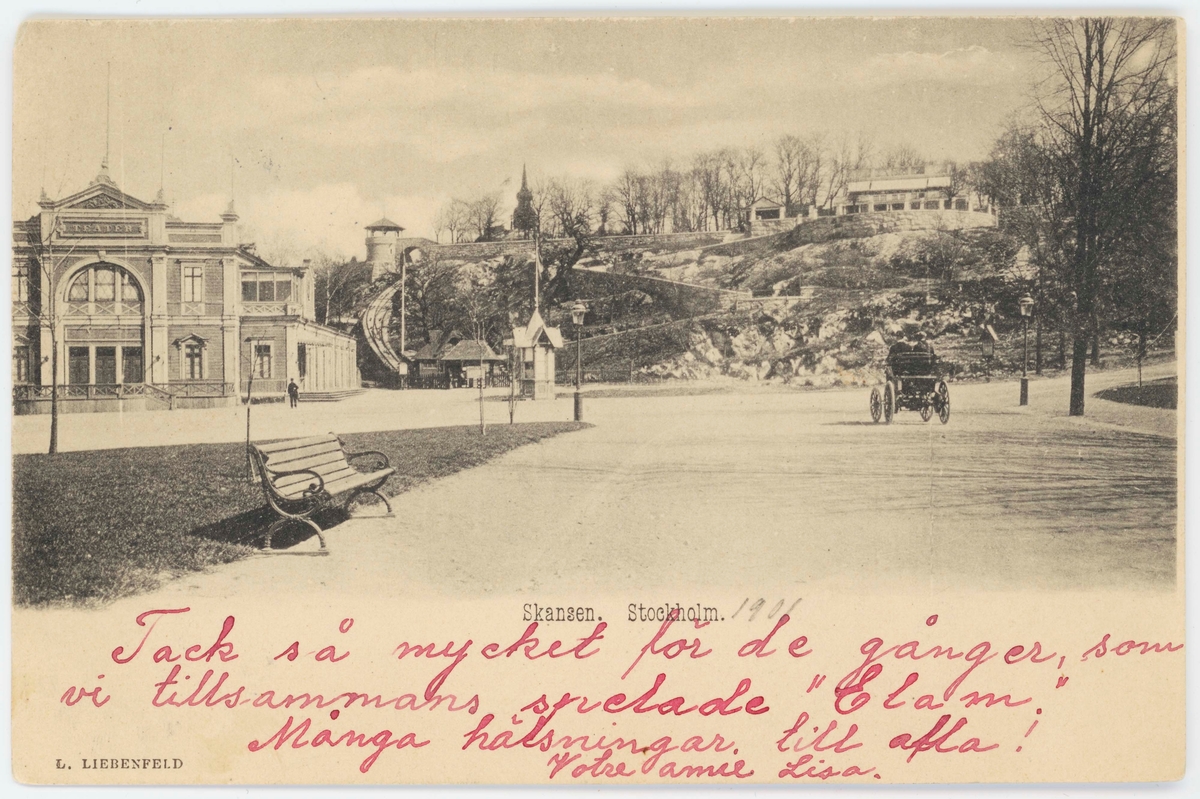 TEATER
Skansen. Stockholm. 1901
Tack så mycket för de gånger, som
vi tillsammans spelade "Elam."
Många hälsningar till alla!
Votre amie Lisa.
L. LIEBENFELD